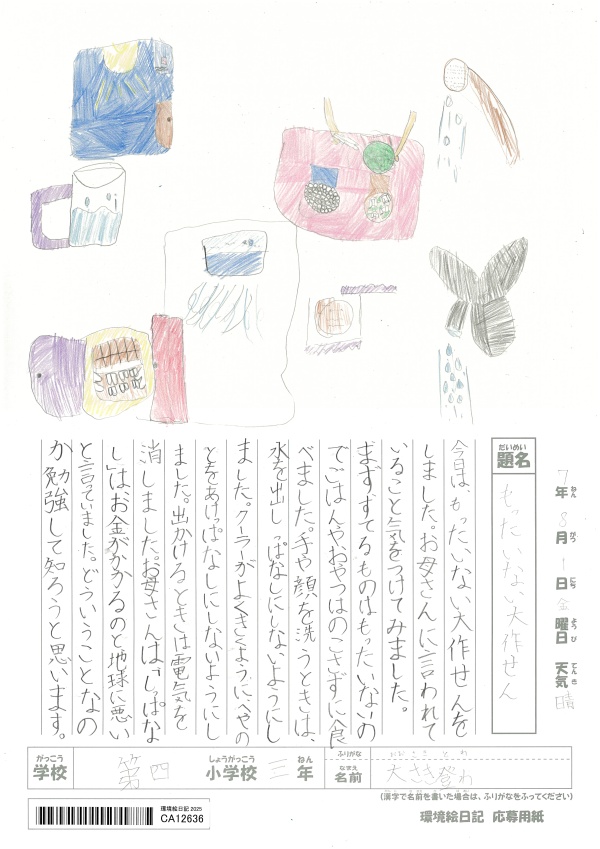 7年8月1日金曜日 天気 晴
ねん がつ にち ようび てんき
だいめい
題名
もったいない大作せん
今日は、もったいない大作せんを
しました。お母さんに言われて
いること気をつけてみました。
まず、すてるものはもったいないの
でごはんやおやつはのこさずに食
べました。手や顔を洗うときは、
水を出しっぱなしにしないようにし
ました。クーラーがよくきくようにへやの
とをあけっぱなしにしないようにし
ました。出かけるときは電気を
消しました。お母さんは「しっぱな
し」はお金がかかるのと地球に悪い
と言ていました。どういうことなの
か勉強して知ろうと思います。
がっこう しょうがっこう ねん ふりがな
学校 第四 小学校 三年
なまえ
名前 大さき登わ
(漢字で名前を書いた場合は、ふりがなをふってください)
環境絵日記 2025
CA12636
環境絵日記 応募用紙